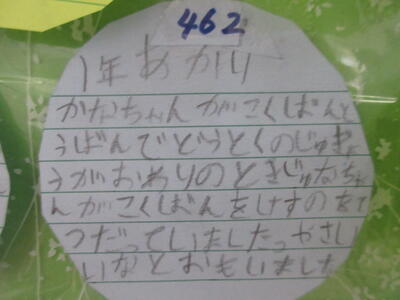 462
1年 あかり
かなちゃんがこくばんと
うばんでどうとくのじゅぎょ
うがおわりのときじゅなちゃ
んがこくばんをけすのをて
つだっていましたっやさし
いなとおもいました